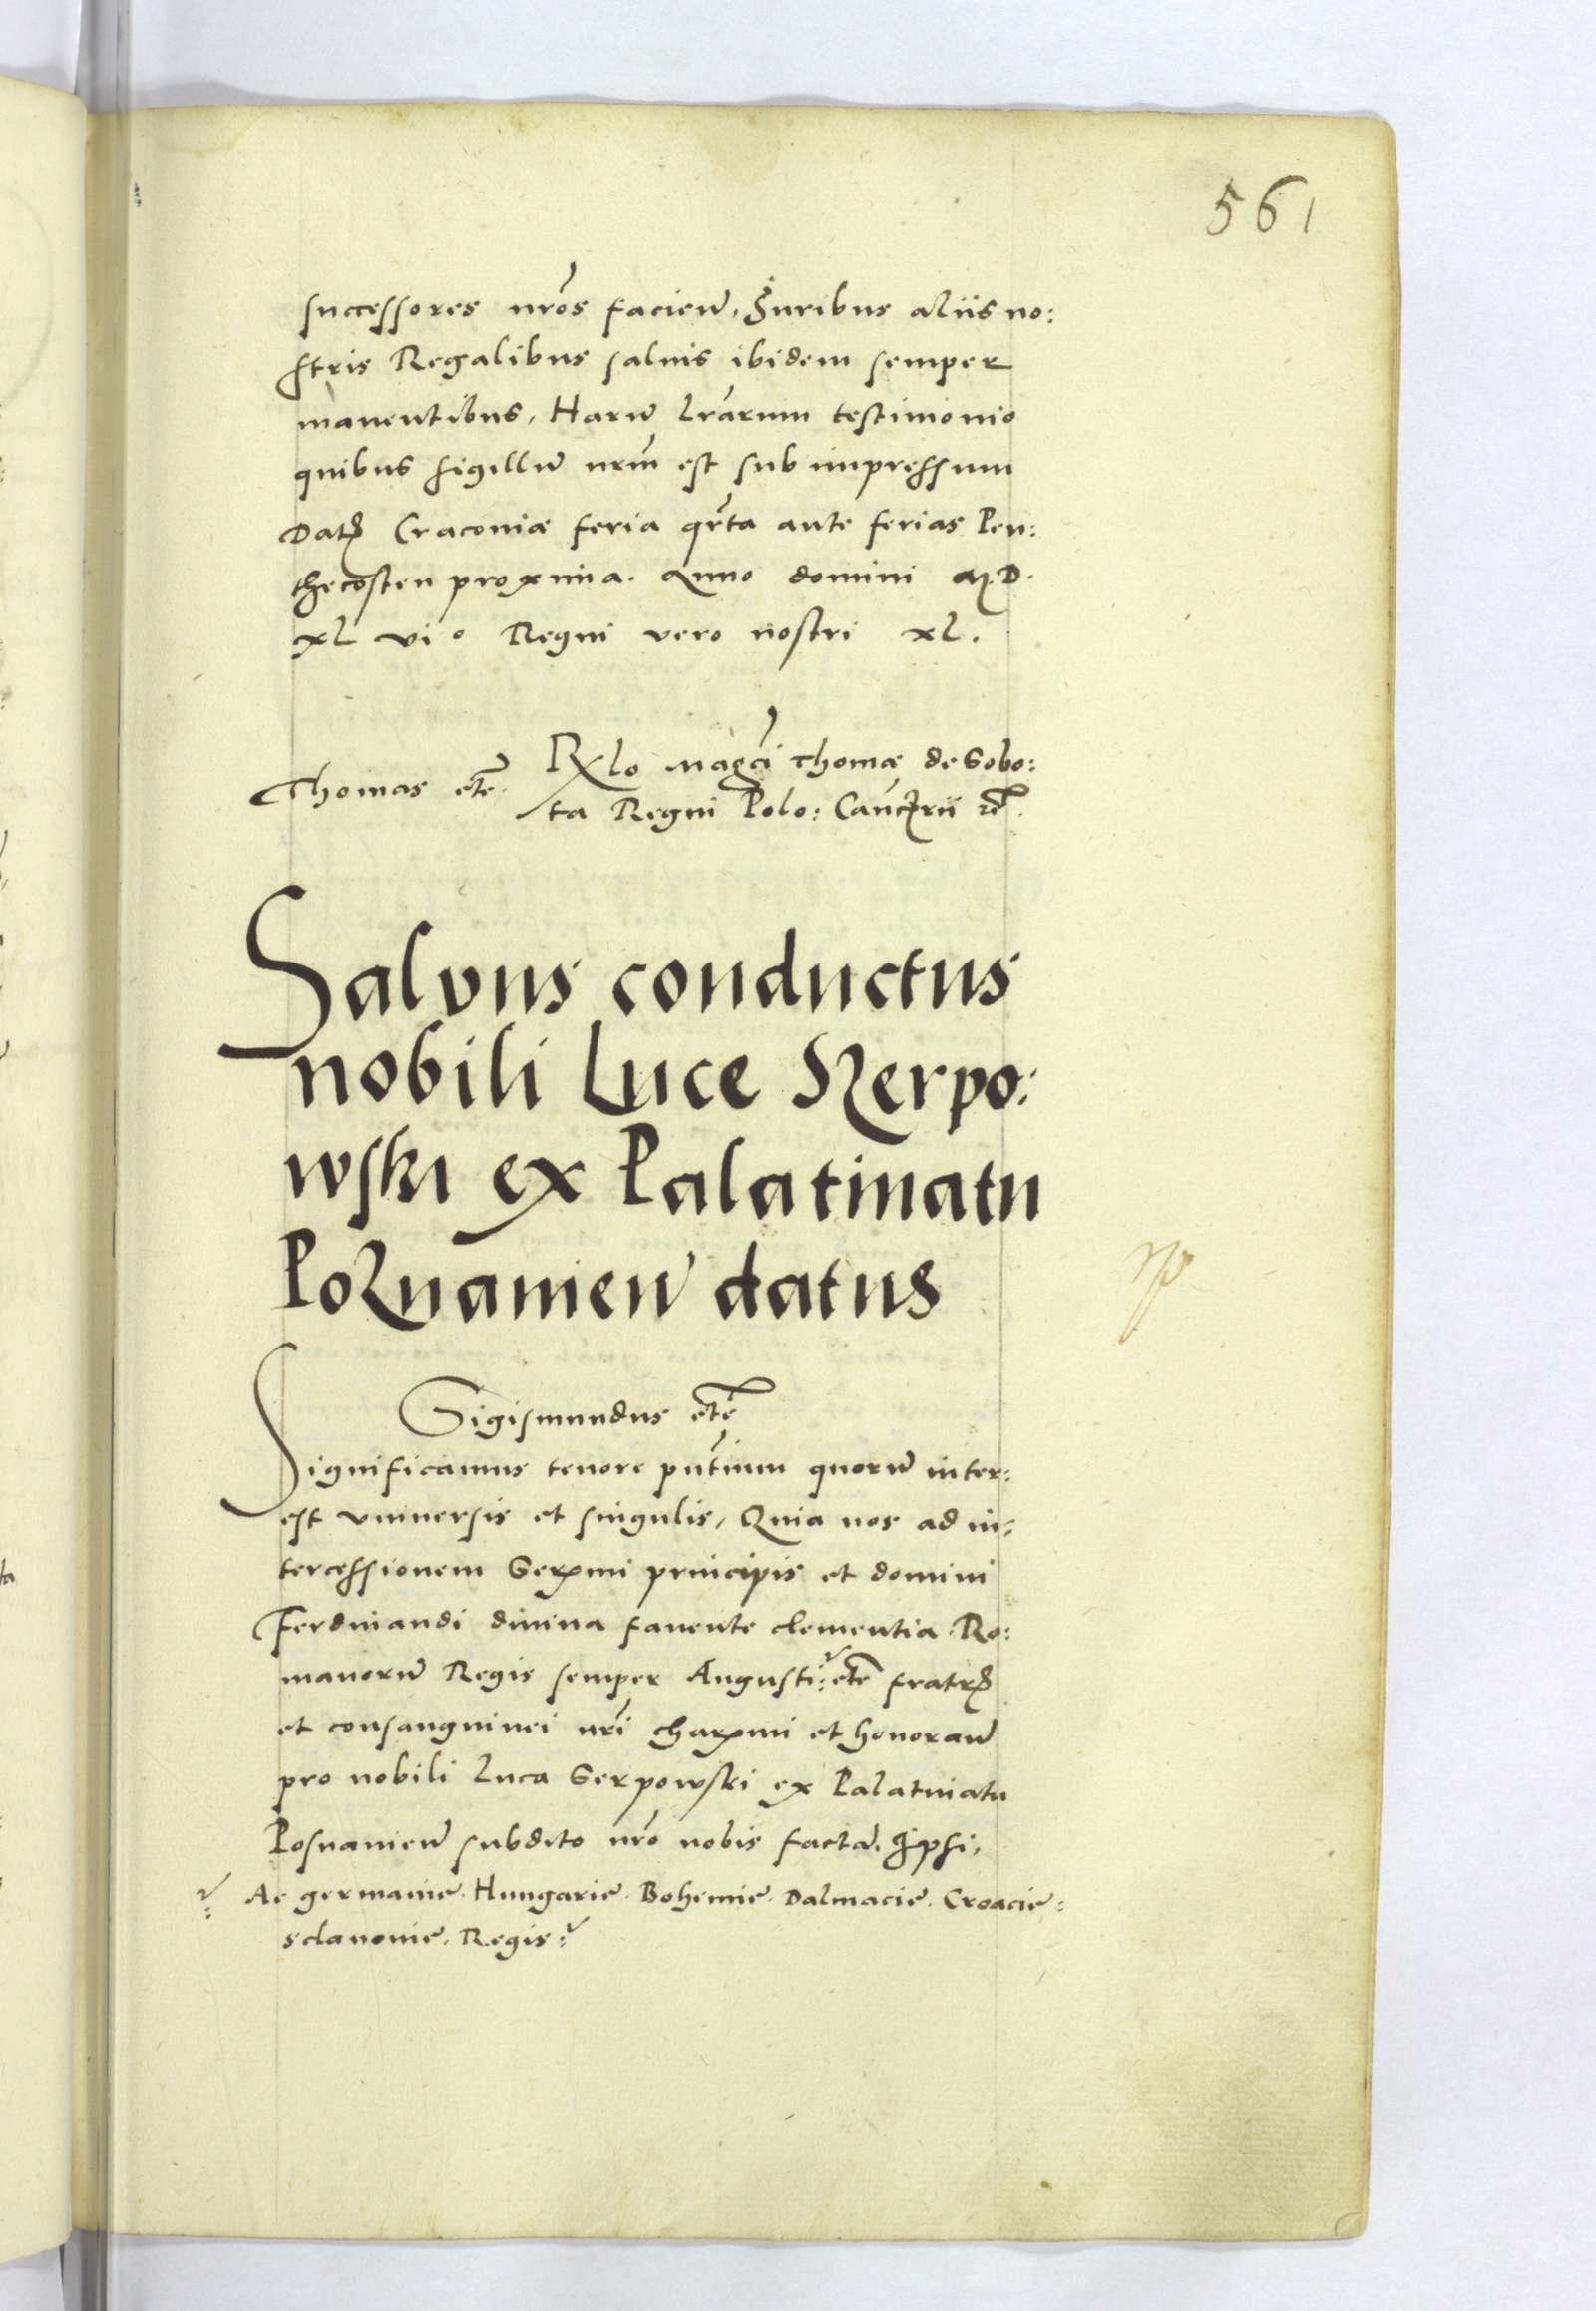 561
successores nr̃os facien̄. Iuribus aliis no:
stris Regalibus saluis ibidem semper
manentibus. Harū lr̃arum testimonio
quibus sigillū nrm̃ est sub impressum
Datꝭ Cracoviæ feria qr̃ta ante ferias Pen:
thecosten proxima. Anno domini M.D.
xl vio Regni vero nostri xl.
Rx̃lo magc̃i Thomæ de Sobo:
Thomas etc̃.
ta Regni Polo: Canc̃rii rc̃.
Salvus conductus
nobili Luce Szerpo:
wski ex Palatinatu
Poznanien̄ datus
Sigismundus etc̃
Significamus tenore pn̄tium quorū inter:
est vniuersis et singulis, Quia nos ad in:
tercessionem Serx̃mi principis et domini
Ferdinandi diuina fauente clementia Ro:
manorū Regis semper Augusti: etc̃ fratrꝭ
et consanguinei nr̃i charx̃mi et honoran̄
pro nobili Luca Serpowski ex Palatinatu
Posnanien̄ subdito nr̃o nobis factā. Ipsi,
Ac germanie. Hungarie. Bohemie. Dalmacie. Croacie:
sclauonie. Regis: